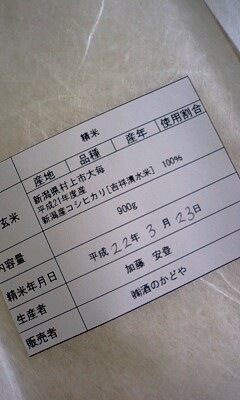 精米
産地 品種 産年 使用割合
玄米
新潟県村上市大毎
平成21年度産
新潟産コシヒカリ[吉祥清水米] 100%
内容量 900g
精米年月日 平成 22年 3月 23日
生産者 加藤 安登
販売者 ㈱酒のかどや